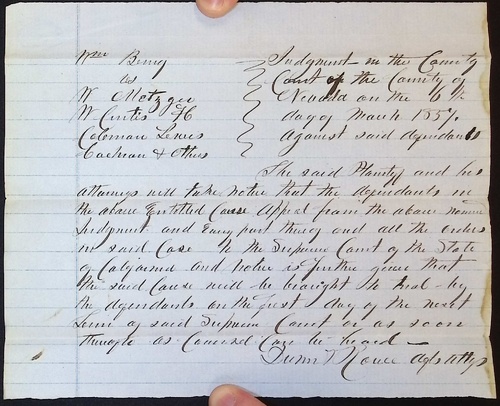 Wm Bemy
vs
W Metzger
W Curtis H
Coleman Lewis
Cochran & Others
Judgment in the County
Court of the County of
Nevada on the 6th
day of March 1857
against said defendants
The said Plantiff and his
attorneys will take notice that the defendants in
the above Entitled Cause Appeal from the above named
Judgment and Every part thereof and all the orders
in said Case to the Supreme Court of the State
of California and notice is further given that
the said Cause will be brought to trial by
the defendants on the first day of the next
Term of said Supreme Court or as soon
thereafter as Counsel Can be heard —
Attys